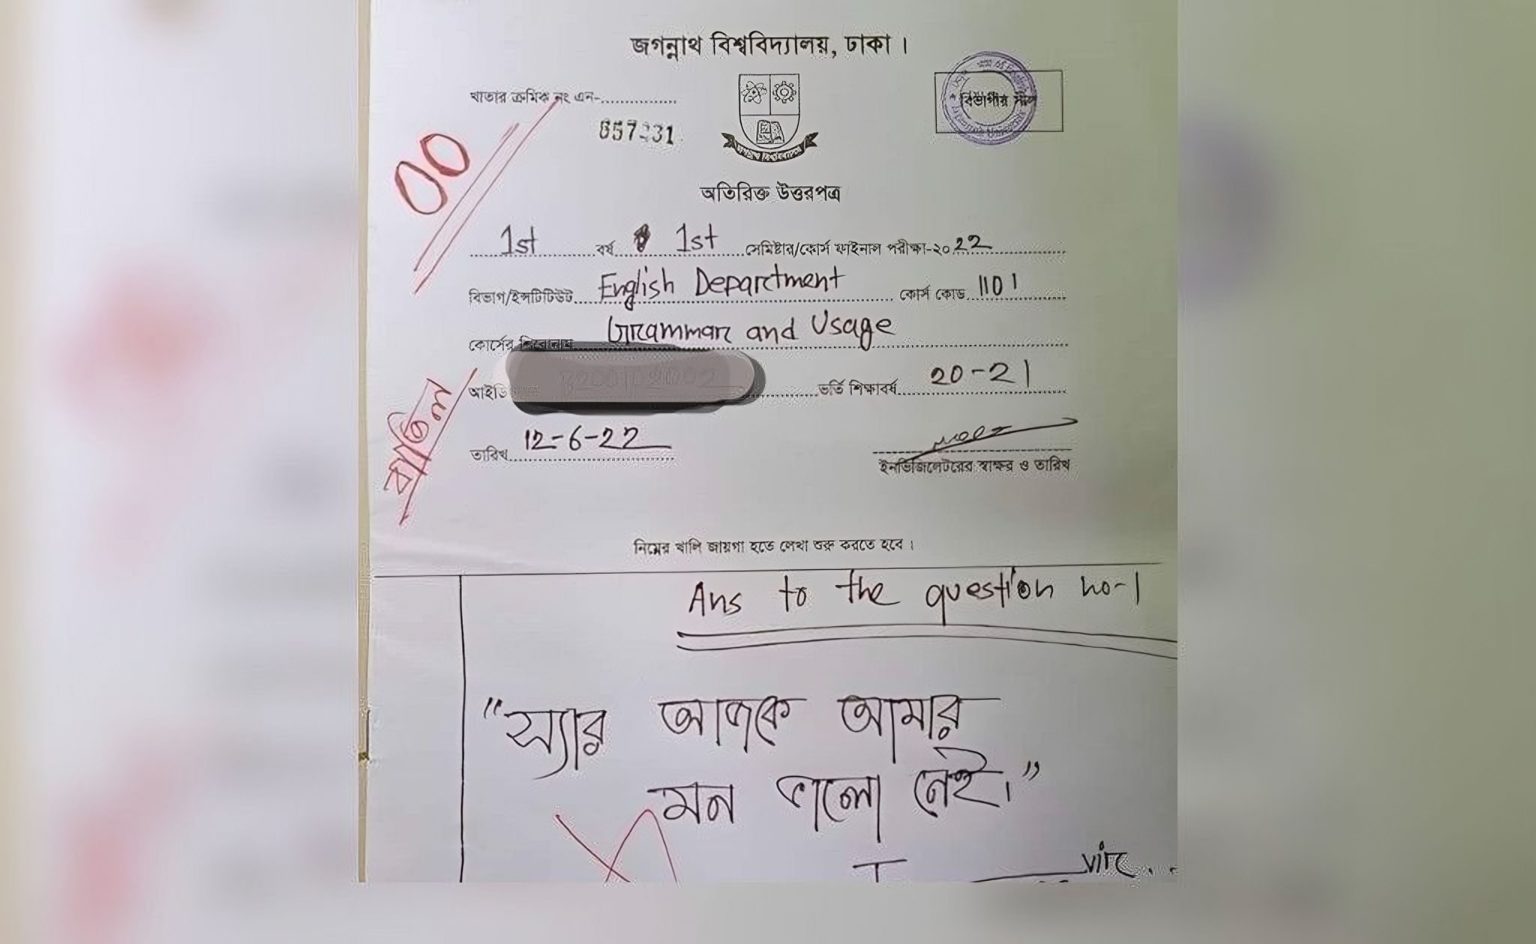 জগন্নাথ বিশ্ববিদ্যালয়, ঢাকা ।
খাতার ক্রমিক নং এন-....................
657231
বিভাগীয় সীল
জগন্নাথ বিশ্ববিদ্যালয়
অতিরিক্ত উত্তরপত্র
00
1st বর্ষ 1st সেমিষ্টার/কোর্স ফাইনাল পরীক্ষা-২০22
বিভাগ/ইন্সটিটিউট English Department কোর্স কোড 1101
কোর্সের শিরোনাম Grammar and Usage
আইডি ভর্তি শিক্ষাবর্ষ 20-21
বাতিল
তারিখ 12-6-22
ইনভিজিলেটরের স্বাক্ষর ও তারিখ
নিম্নের খালি জায়গা হতে লেখা শুরু করতে হবে ।
Ans to the question no-1
"স্যার আজকে আমার
মন ভালো নেই।"